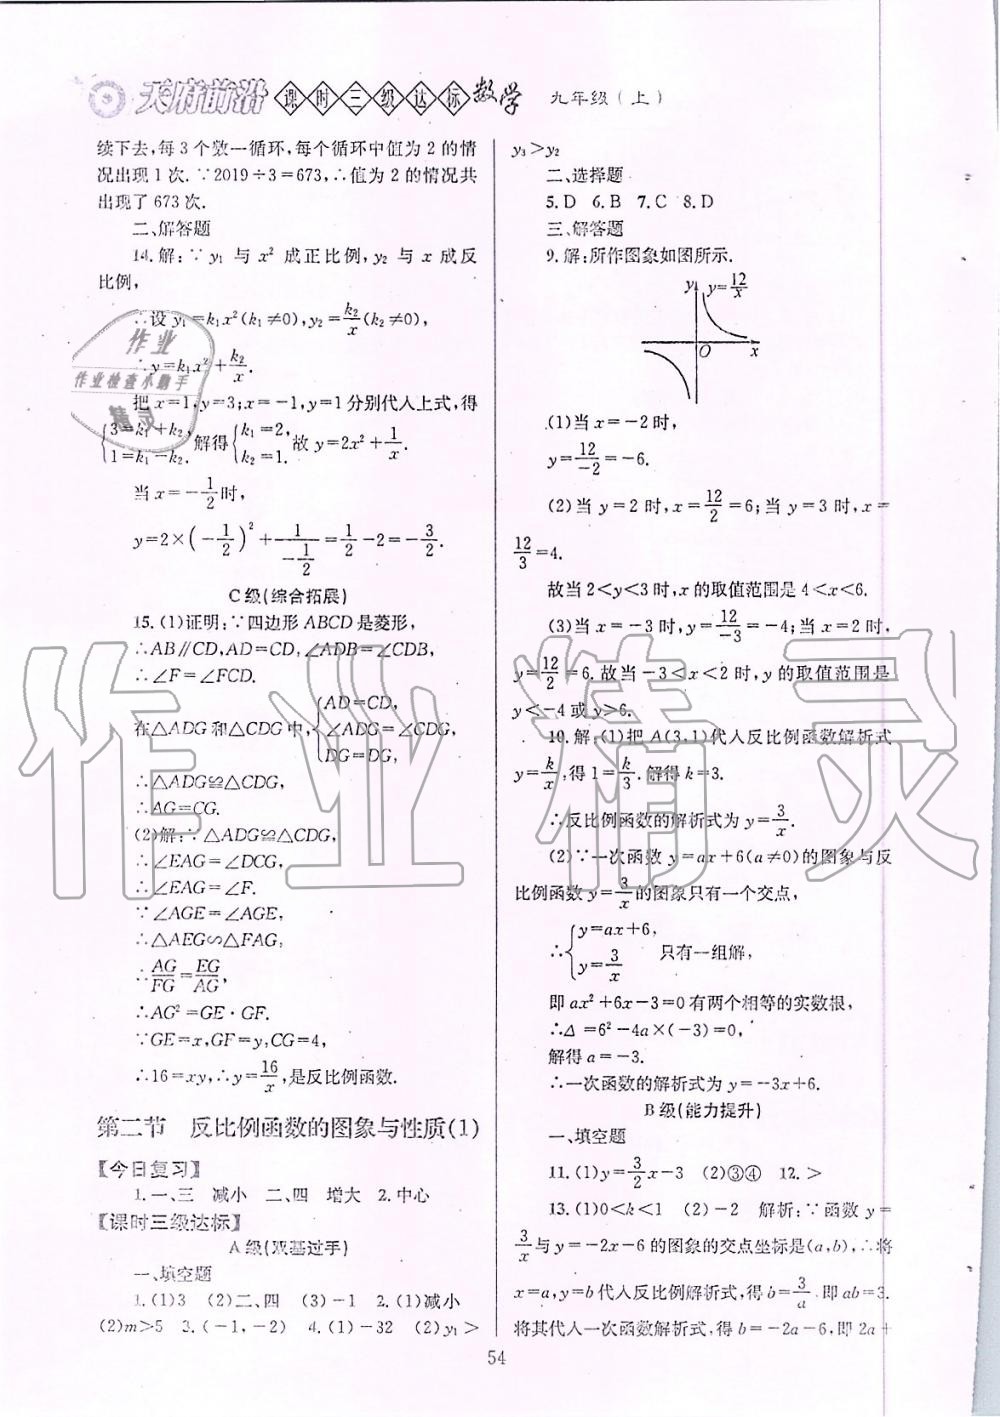 天府前沿 课时三级达标 数学 九年级(上)
续下去,每3个数一循环,每个循环中值为2的情
况出现1次.∵2019÷3=673,∴值为2的情况共
出现了673次.
二、解答题
14.解:∵y₁与x²成正比例,y₂与x成反
比例,
∴设y₁=k₁x²(k₁≠0),y₂=k₂/x(k₂≠0),
∴y=k₁x²+k₂/x.
把x=1,y=3;x=-1,y=1分别代入上式,得
{3=k₁+k₂, 1=k₁-k₂. 解得{k₁=2, k₂=1. 故y=2x²+1/x.
当x=-1/2时,
y=2×(-1/2)²+1/(-1/2)=1/2-2=-3/2.
C级(综合拓展)
15.(1)证明:∵四边形ABCD是菱形,
∴AB∥CD,AD=CD,∠ADB=∠CDB,
∴∠F=∠FCD.
在△ADG和△CDG中,{AD=CD, ∠ADG=∠CDG, DG=DG,
∴△ADG≌△CDG,
∴AG=CG.
(2)解:∵△ADG≌△CDG,
∴∠EAG=∠DCG,
∴∠EAG=∠F.
∵∠AGE=∠AGE,
∴△AEG∽△FAG,
∴AG/FG=EG/AG,
∴AG²=GE·GF.
∵GE=x,GF=y,CG=4,
∴16=xy,∴y=16/x,是反比例函数.
第二节 反比例函数的图象与性质(1)
【今日复习】
1.一、三 减小 二、四 增大 2.中心
【课时三级达标】
A级(双基过手)
一、填空题
1.(1)3 (2)二、四 (3)-1 2.(1)减小
(2)m>5 3.(-1,-2) 4.(1)-32 (2)y₁>
y₃>y₂
二、选择题
5.D 6.B 7.C 8.D
三、解答题
9.解:所作图象如图所示.
y y=12/x
O x
(1)当x=-2时,
y=12/-2=-6.
(2)当y=2时,x=12/2=6;当y=3时,x=
12/3=4.
故当2<y<3时,x的取值范围是4<x<6.
(3)当x=-3时,y=12/-3=-4;当x=2时,
y=12/2=6.故当-3<x<2时,y的取值范围是
y<-4或y>6.
10.解:(1)把A(3,1)代入反比例函数解析式
y=k/x,得1=k/3.解得k=3.
∴反比例函数的解析式为y=3/x.
(2)∵一次函数y=ax+6(a≠0)的图象与反
比例函数y=3/x的图象只有一个交点,
∴{y=ax+6, y=3/x 只有一组解,
即ax²+6x-3=0有两个相等的实数根,
∴Δ=6²-4a×(-3)=0,
解得a=-3.
∴一次函数的解析式为y=-3x+6.
B级(能力提升)
一、填空题
11.(1)y=3/2x-3 (2)③④ 12.>
13.(1)0<k<1 (2)-2 解析:∵函数y=
3/x与y=-2x-6的图象的交点坐标是(a,b),∴将
x=a,y=b代入反比例解析式,得b=3/a.即ab=3.
将其代入一次函数解析式,得b=-2a-6,即2a+
54
作业
作业检查小助手
精灵
作业精灵